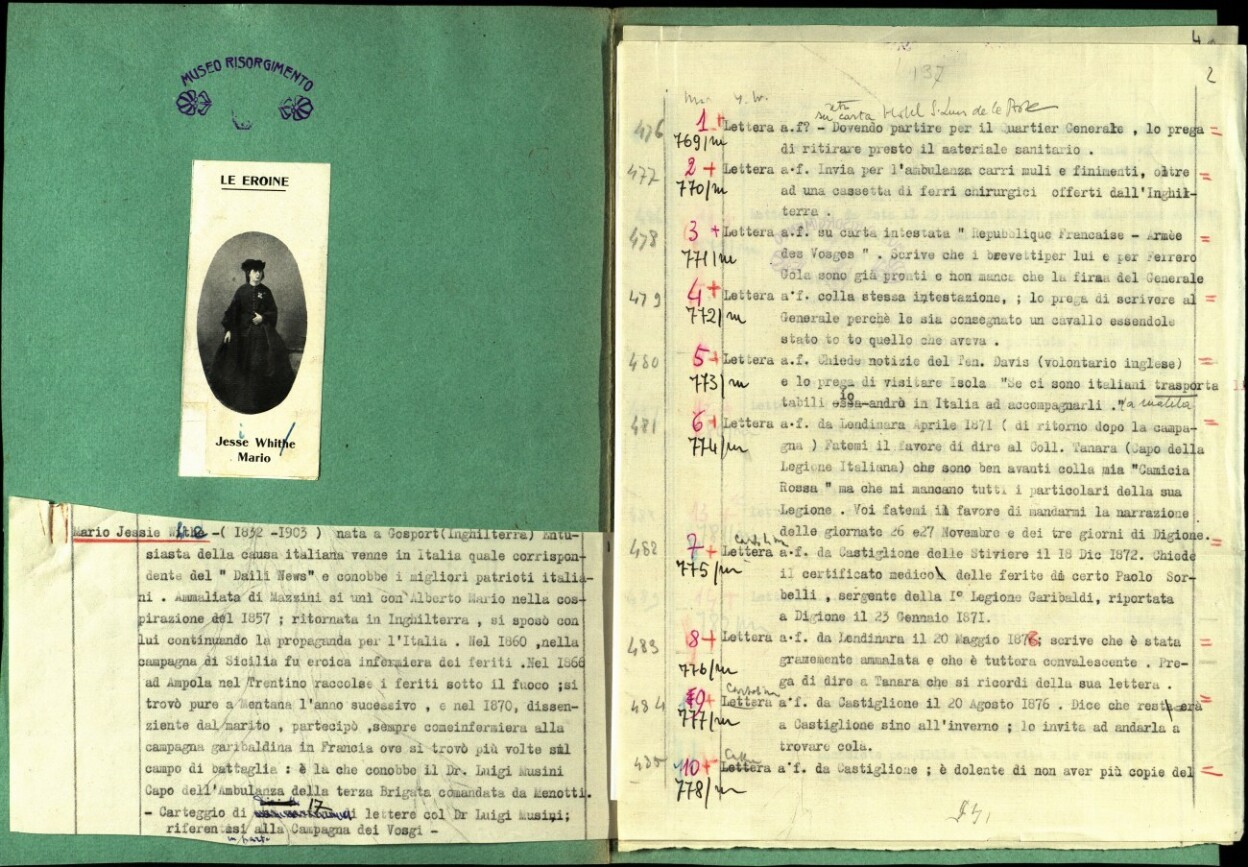 MUSEO RISORGIMENTO
LE EROINE
Jesse Whithe
i
Mario
Mario Jessie White -( 1832 -1903 ) nata a Gosport(Inghilterra) Entu-
siasta della causa italiana venne in Italia quale corrispon-
dente del " Daili News" e conobbe i migliori patrioti italia-
ni . Ammaliata di Mazzini si unì con Alberto Mario nella cos-
pirazione del 1857 ; ritornata in Inghilterra , si sposò con
lui continuando la propaganda per l'Italia . Nel 1860 ,nella
campagna di Sicilia fu eroica infermiera dei feriti .Nel 1866
ad Ampola nel Trentino raccolse i feriti sotto il fuoco ;si
trovò pure a Mentana l'anno sucessivo , e nel 1870, dissen-
ziente dal marito , partecipò ,sempre comeinfermiera alla
campagna garibaldina in Francia ove si trovò più volte sul
campo di battaglia : è la che conobbe il Dr. Luigi Musini
Capo dell'Ambulanza della terza Brigata comandata da Menotti.
- Carteggio di 17 di lettere col Dr Luigi Musini;
riferentisi alla Campagna dei Vosgi -
in parte
4
137
2
su carta Hotel
476 1+ Lettera a.f? - Dovendo partire per il Quartier Generale , lo prega =
769/m di ritirare presto il materiale sanitario .
477 2+ Lettera a.f. Invia per l'ambulanza carri muli e finimenti, oltre =
770/m ad una cassetta di ferri chirurgici offerti dall'Inghil-
terra .
478 3+ Lettera a.f. su carta intestata " Repubblique Francaise - Armèe =
771/m des Vosges " . Scrive che i brevettiper lui e per Ferrero
Gola sono già pronti e non manca che la firma del Generale
479 4+ Lettera a.f. colla stessa intestazione, ; lo prega di scrivere al =
772/m Generale perchè le sia consegnato un cavallo essendole
stato to to quello che aveva .
480 5+ Lettera a.f. Chiede notizie del Ten. Davis (volontario inglese) =
773/m e lo prega di visitare Isola "Se ci sono italiani trasporta
io
tabili essa andrò in Italia ad accompagnarli ." a matita
481 6+ Lettera a.f. da Lendinara Aprile 1871 ( di ritorno dopo la campa- =
774/m gna ) Fatemi il favore di dire al Coll. Tanara (Capo della
Legione Italiana) che sono ben avanti colla mia "Camicia
Rossa " ma che mi mancano tutti i particolari della sua
Legione . Voi fatemi il favore di mandarmi la narrazione
delle giornate 26 e27 Novembre e dei tre giorni di Digione.
Cartolina
482 7+ Lettera a.f. da Castiglione delle Stiviere il 18 Dic 1872. Chiede =
775/m il certificato medico delle ferite di certo Paolo Sor-
belli , sergente della I° Legione Garibaldi, riportata
a Digione il 23 Gennaio 1871.
483 8+ Lettera a.f. da Lendinara il 20 Maggio 1876; scrive che è stata =
776/m gravemente ammalata e che è tuttora convalescente . Pre-
ga di dire a Tanara che si ricordi della sua lettera .
Cartolina
484 9+ Lettera a.f. da Castiglione il 20 Agosto 1876 . Dice che resterà =
777/m a Castiglione sino all'inverno ; lo invita ad andarla a
trovare cola.
485 10+ Lettera a.f. da Castiglione ; è dolente di non aver più copie del =
778/m